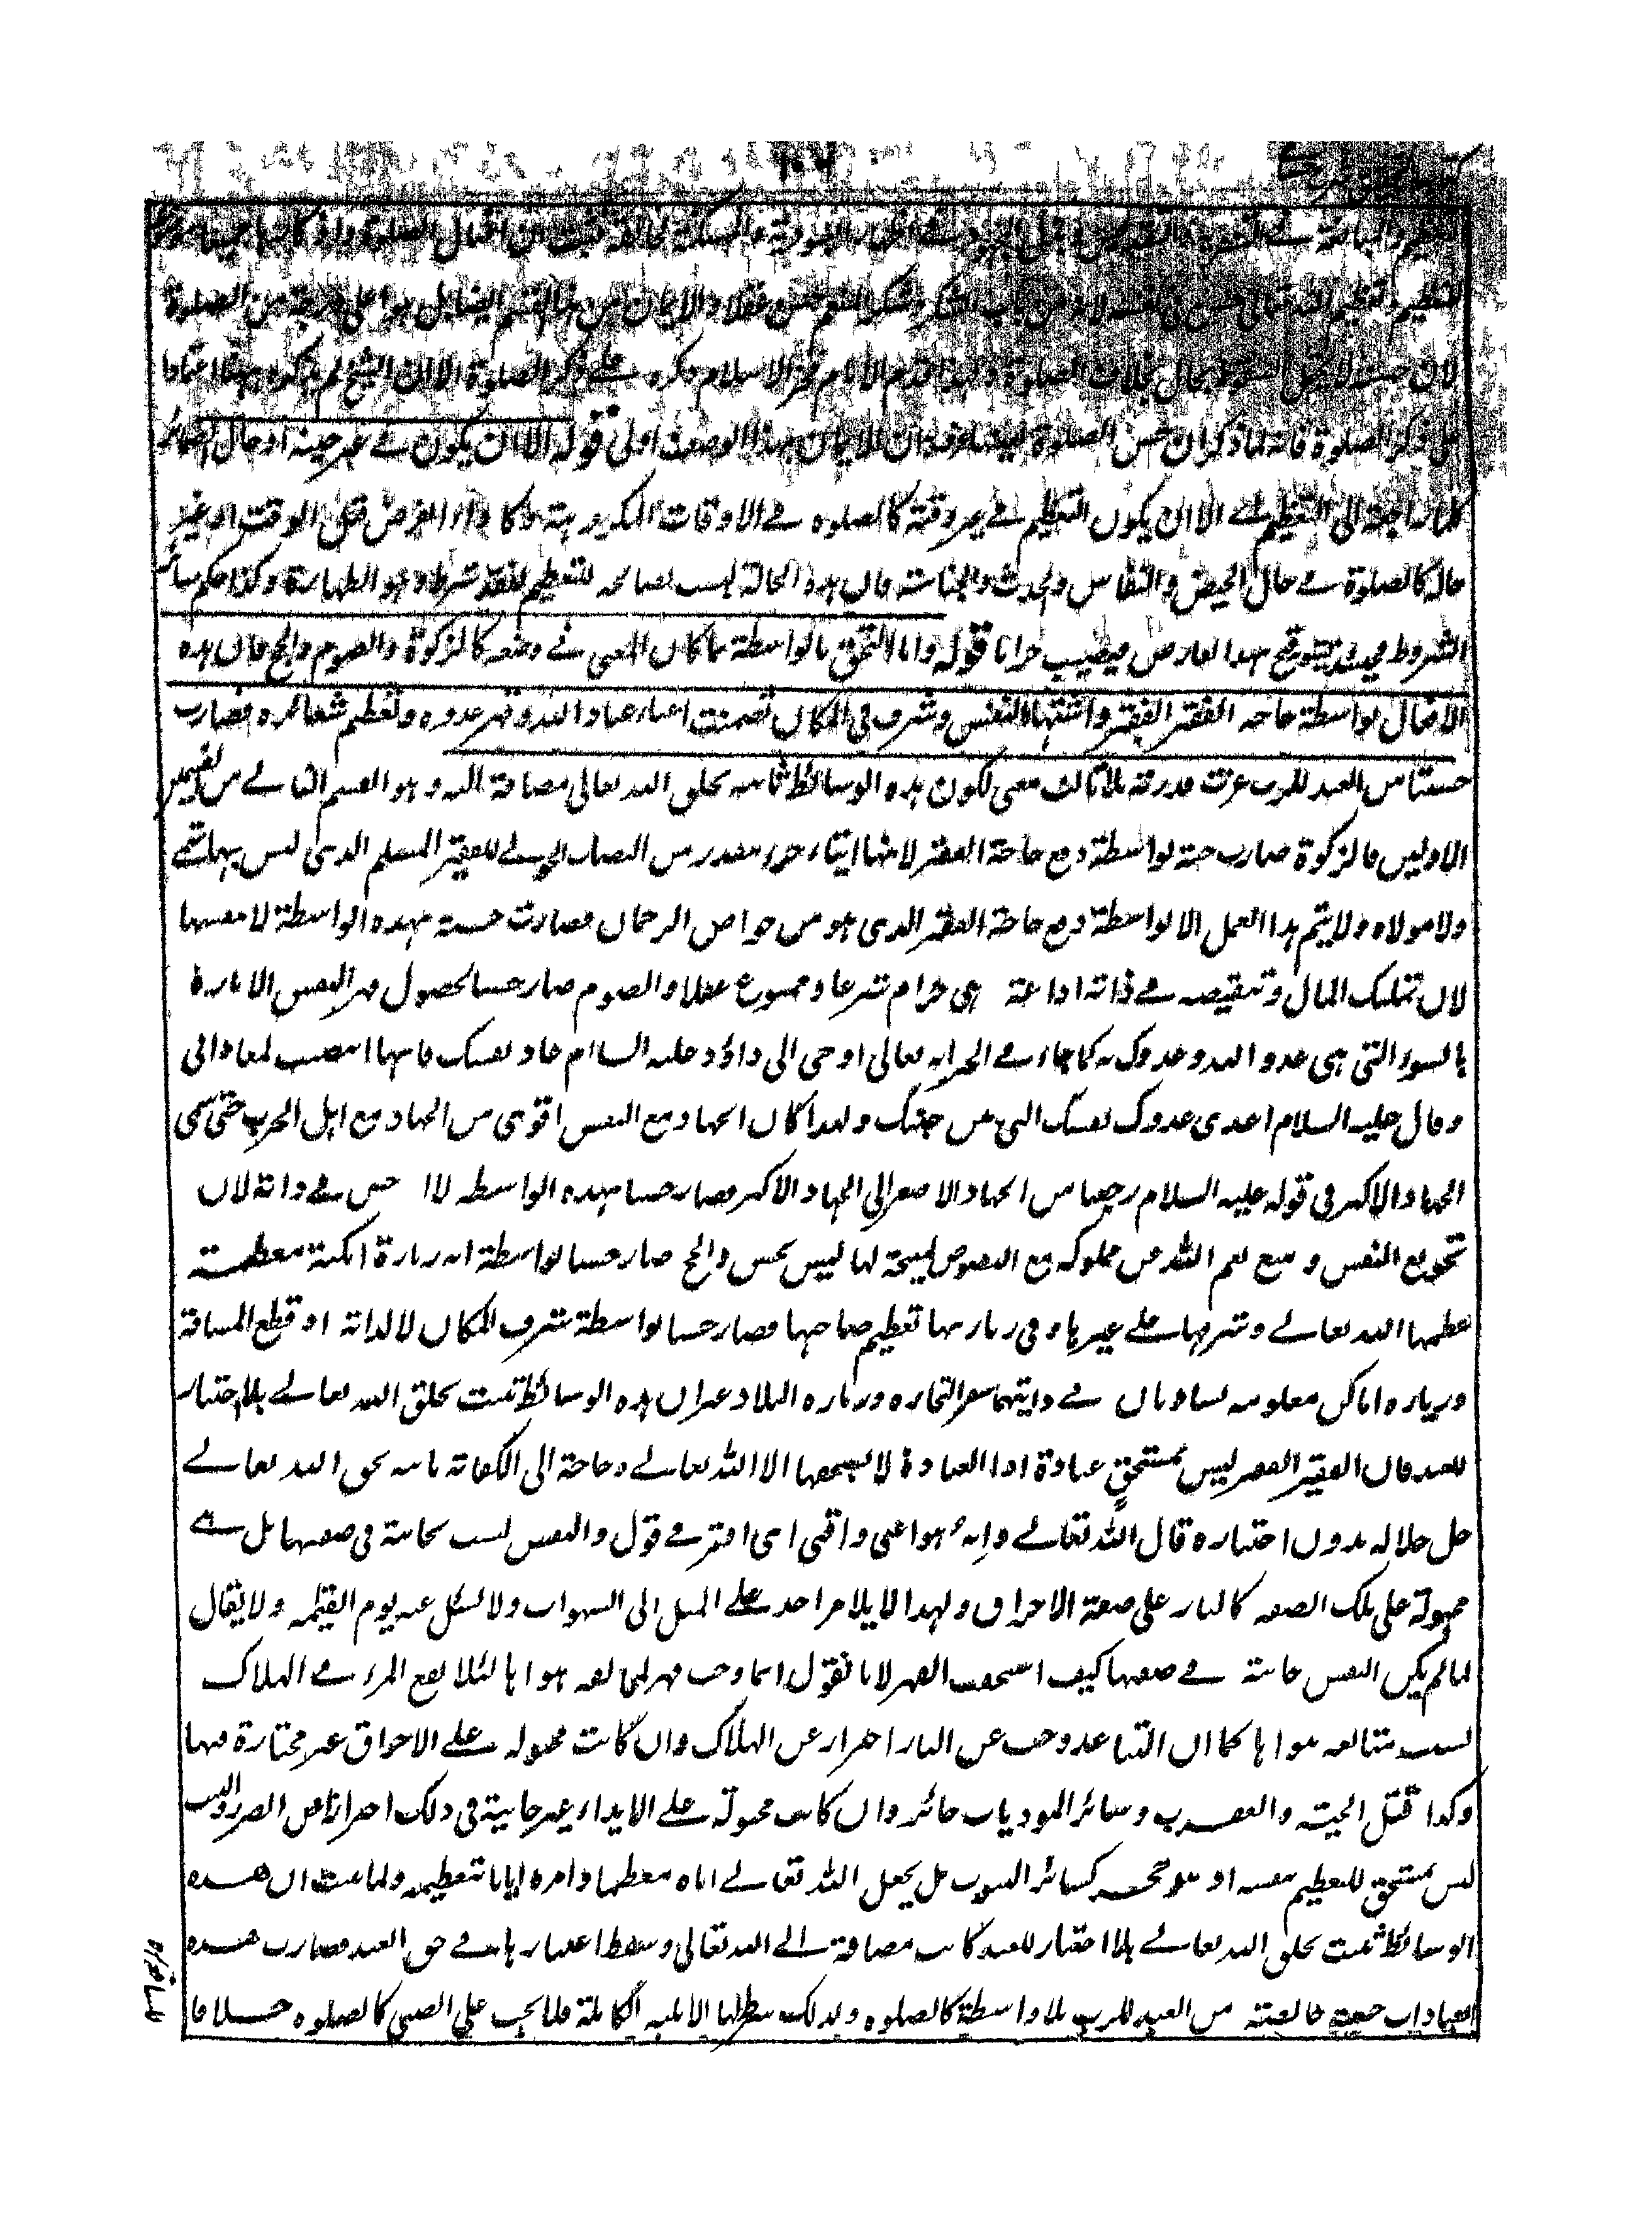 التعظيم
للتعظيم وتعظيم الله تعالى حسن في نفسه لانه من باب الشكر وشكر المنعم حسن عقلا والايمان من هذا القسم ايضا بل هو اعلى درجة من الصلوة
لان حسنه لا يقبل السقوط بحال بخلاف الصلوة ولهذا قدم الامام فخر الاسلام ذكره على ذكر الصلوة الا ان الشيخ لم يذكره ههنا اعتمادا
على ذكر الصلوة فانه لما ذكر ان حسن الصلوة لعينها عرف ان الايمان بهذا الوصف اولى قوله الا ان يكون في غير حينه او حاله الضمائر
كلها راجعة الى التعظيم اى الا ان يكون التعظيم في غير وقته كالصلوة في الاوقات المكروهة وكاداء الفرض قبل الوقت او غير
حاله كالصلوة في حال الحيض والنفاس والحدث والجنابة فان هذه الحالة ليست بصالحة للتعظيم لفقد شرطه وهو الطهارة وكذا حكم سائر
الشروط فحينئذ يقبح بهذا العارض فيصير حراما قوله واما التحق بالواسطة بما كان المعنى في وضعه كالزكوة والصوم والحج فان هذه
الافعال بواسطة حاجة الفقير واشتهاء النفس وشرف في المكان تضمنت اغناء عباد الله وقهر عدوه وتعظيم شعائره فصارت
حسنا من العبد للرب عزت قدرته بلا ثالث معنى لكون هذه الوسائط ثابتة بخلق الله تعالى مضافة اليه وهو القسم الثاني من القسمين
الاولين فالزكوة صارت حسنة بواسطة دفع حاجة الفقير لانها ايتاء جزء مقدر من النصاب الحولى للفقير المسلم الذى ليس بهاشمى
ولا مولاه ولا يتم هذا العمل الا بواسطة دفع حاجة الفقير الذى هو من خواص الرحمان فصارت حسنة بهذه الواسطة لا بنفسها
لان تمليك المال وتنقيصه في ذاته اضاعة هى حرام شرعا وممنوع عقلا والصوم صار حسنا لحصول قهر النفس الامارة
بالسوء التى هى عدو الله وعدوك كما جاء في الخبر انه تعالى اوحى الى داؤد عليه السلام عاد نفسك فانها انتصبت لمعاداتى
وقال عليه السلام اعدى عدوك نفسك التى بين جنبيك ولهذا كان الجهاد مع النفس اقوى من الجهاد مع اهل الحرب حتى سمى
الجهاد الاكبر فى قوله عليه السلام رجعنا من الجهاد الاصغر الى الجهاد الاكبر فصار حسنا بهذه الواسطة لا انه حسن في ذاته لان
تجويع النفس ومنع نعم الله عن مملوكه مع النصوص المبيحة لها ليس بحسن والحج صار حسنا بواسطة انه زيارة امكنة معظمة
عظمها الله تعالى وشرفها على غيرها وفى زيارتها تعظيم صاحبها فصار حسنا بواسطة شرف المكان لا لذاته اذ قطع المسافة
وزيارة اماكن معلومة تساويان في ذاتيهما سفر التجارة وزيارة البلاد غير ان هذه الوسائط ثبتت بخلق الله تعالى بلا اختيار
للعبد فان الفقير ليس بمستحق عبادة اذ العبادة لا يستحقها الا الله تعالى وحاجته الى الكفاية ثابتة بخلق الله تعالى
جل جلاله بدون اختياره قال الله تعالى وانه هو اغنى واقنى اى افقر في قول والنفس ليست بجانية فى صفتها بل هى
مجبولة على تلك الصفة كالنار على صفة الاحراق ولهذا لا يلام احد على الميل الى الشهوات ولا يسئل عنه يوم القيٰمة ولا يقال
لما لم يكن النفس جانية في صفتها كيف استحقت القهر لانا نقول انما وجب قهرها لمخالفة هواها لئلا يقع المرء في الهلاك
بسبب متابعة هواها كما ان التباعد وجب عن النار احترازا عن الهلاك وان كانت مجبولة على الاحراق غير مختارة فيها
وكذا قتل الحية والعقرب وسائر الموذيات جائز وان كانت مجبولة على الايذاء غير جانية فى ذلك احترازا عن الضرر والبيت
ليس بمستحق للتعظيم بنفسه اذ هو حجر كسائر البيوت بل بجعل الله تعالى اياه معظما وامره ايانا بتعظيمه ولما ثبت ان هذه
الوسائط ثبتت بخلق الله تعالى بلا اختيار للعبد كانت مضافة الى الله تعالى وسقط اعتبارها في حق العبد فصارت هذه
العبادات حسنة خالصة من العبد للرب بلا واسطة كالصلوة ولذلك شرط لها الاهلية الكاملة فلا يجب على الصبى كالصلوة خلافا